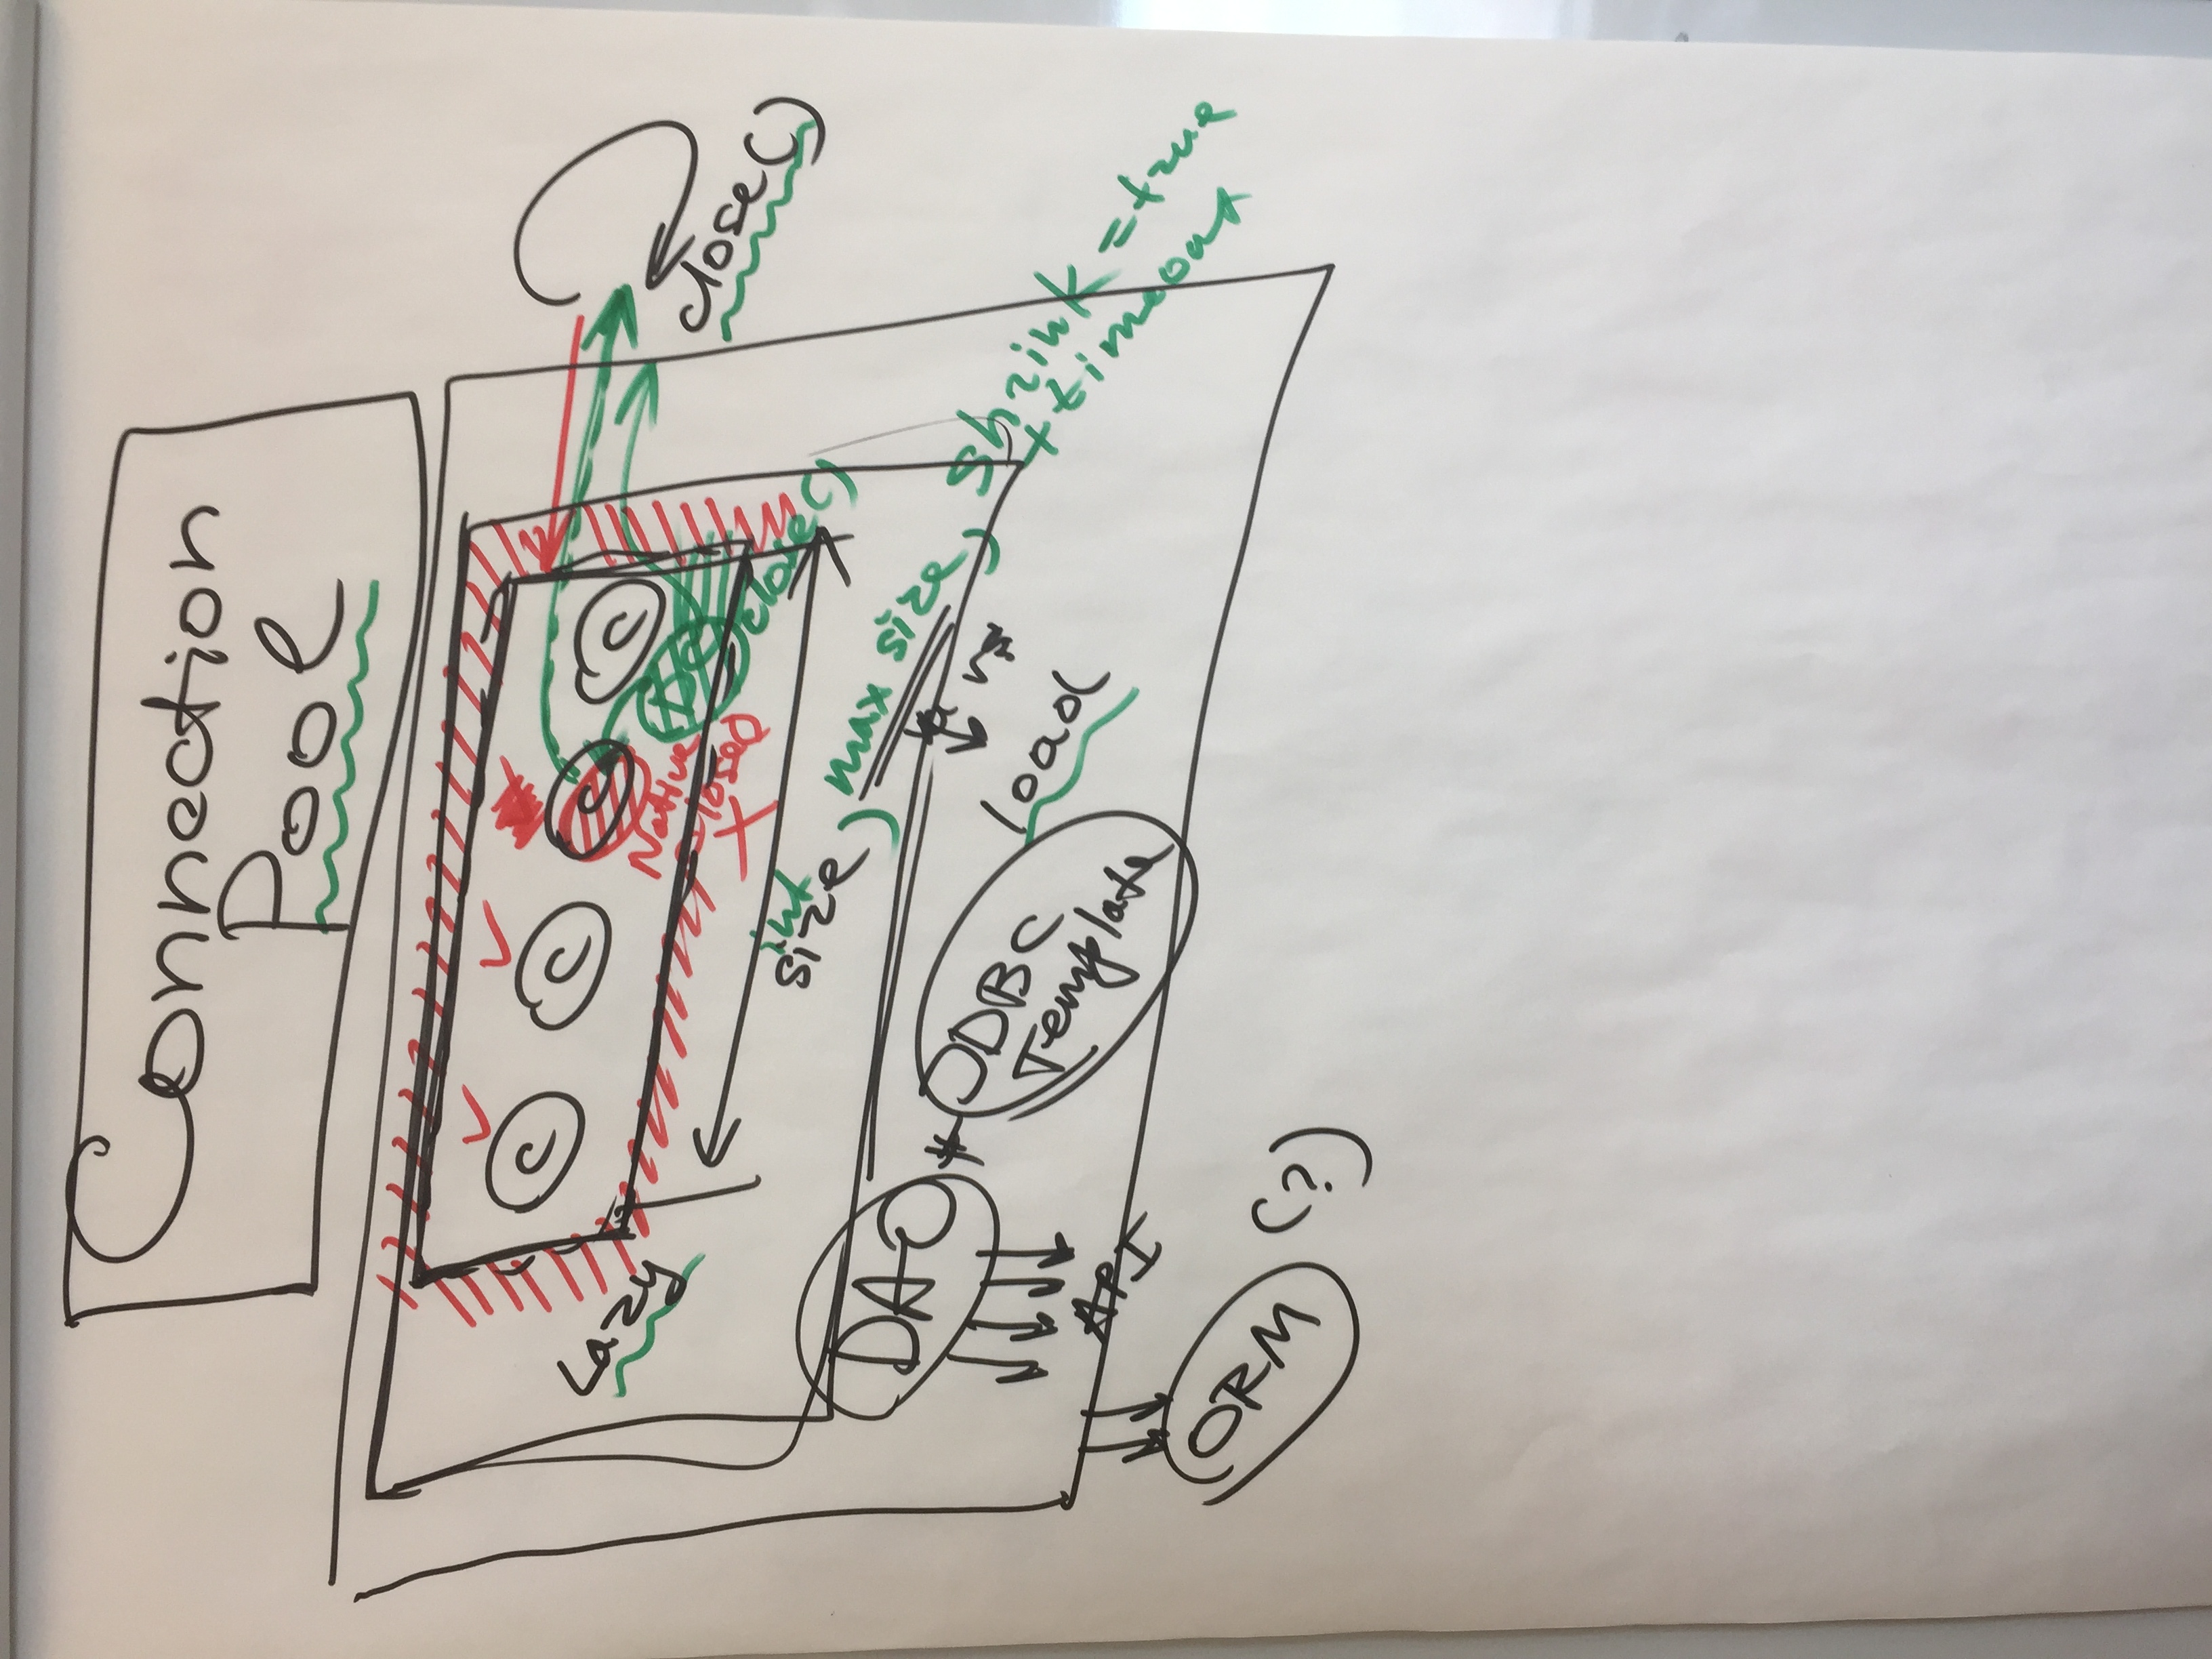 Connection
Pool
C
C
C
C
Lazy
Native
closed
DC
close()
close()
int
size, max size, shrink=true
+ timeout
DAO
JDBC
Template
load
API
ORM (?)